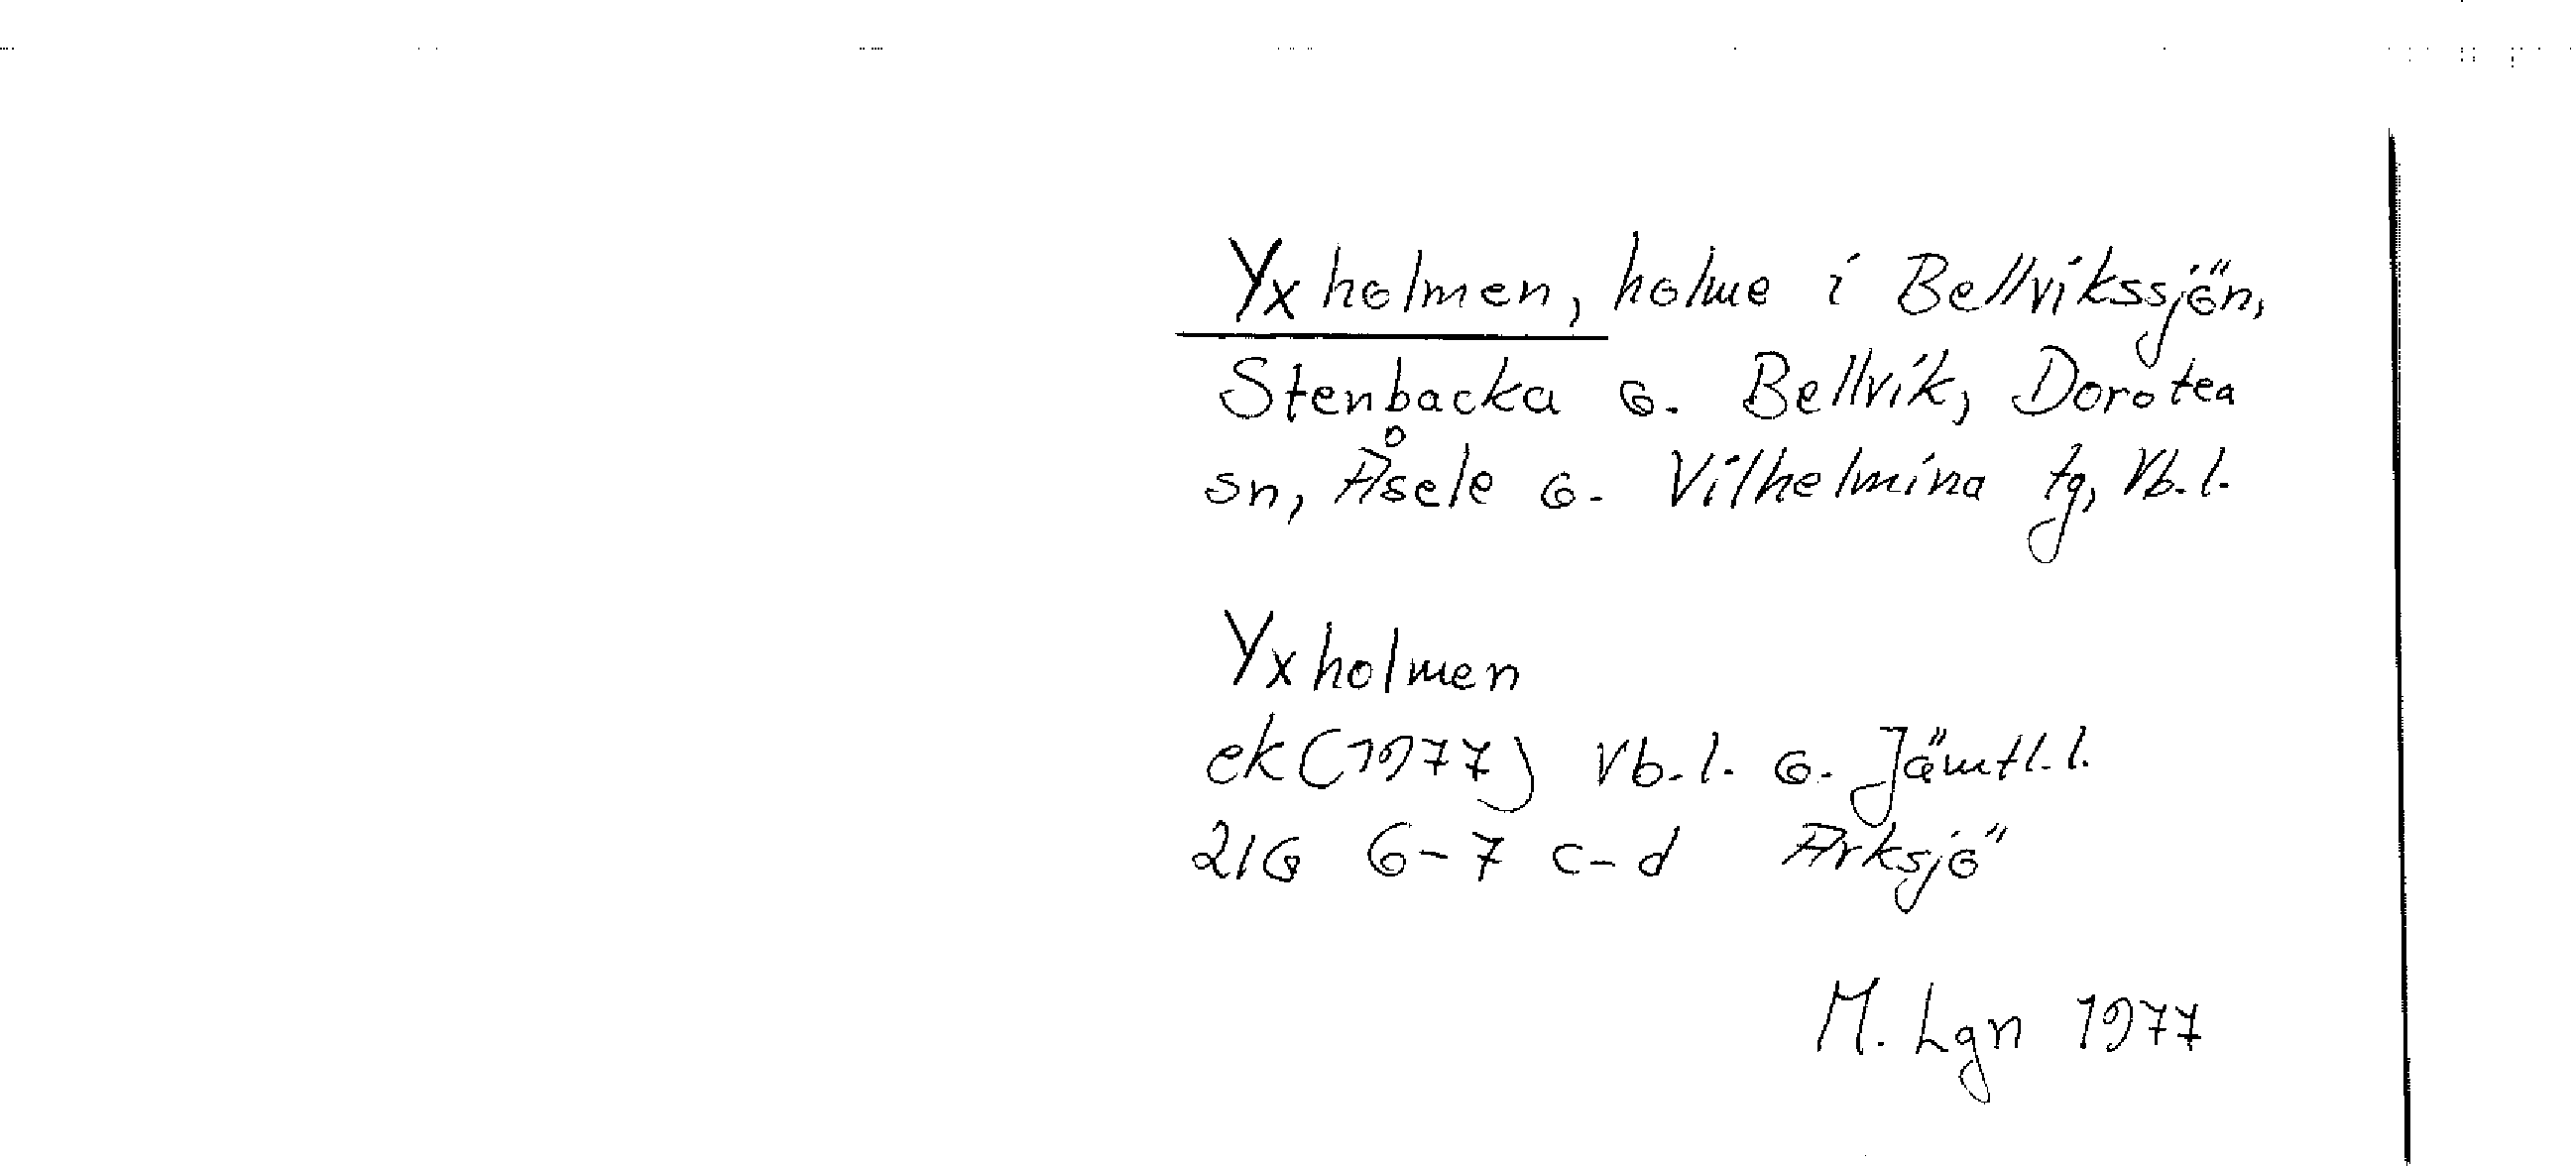 Yxholmen, holme i Bellvikssjön,
Stenbacka o. Bellvik, Dorotea
sn, Åsele o. Vilhelmina tg, Vb. l.
Yxholmen
ek (1977) Vb. l. o. Jämtl. l.
21G 6-7 c-d Arksjö
M. Lgn 1977